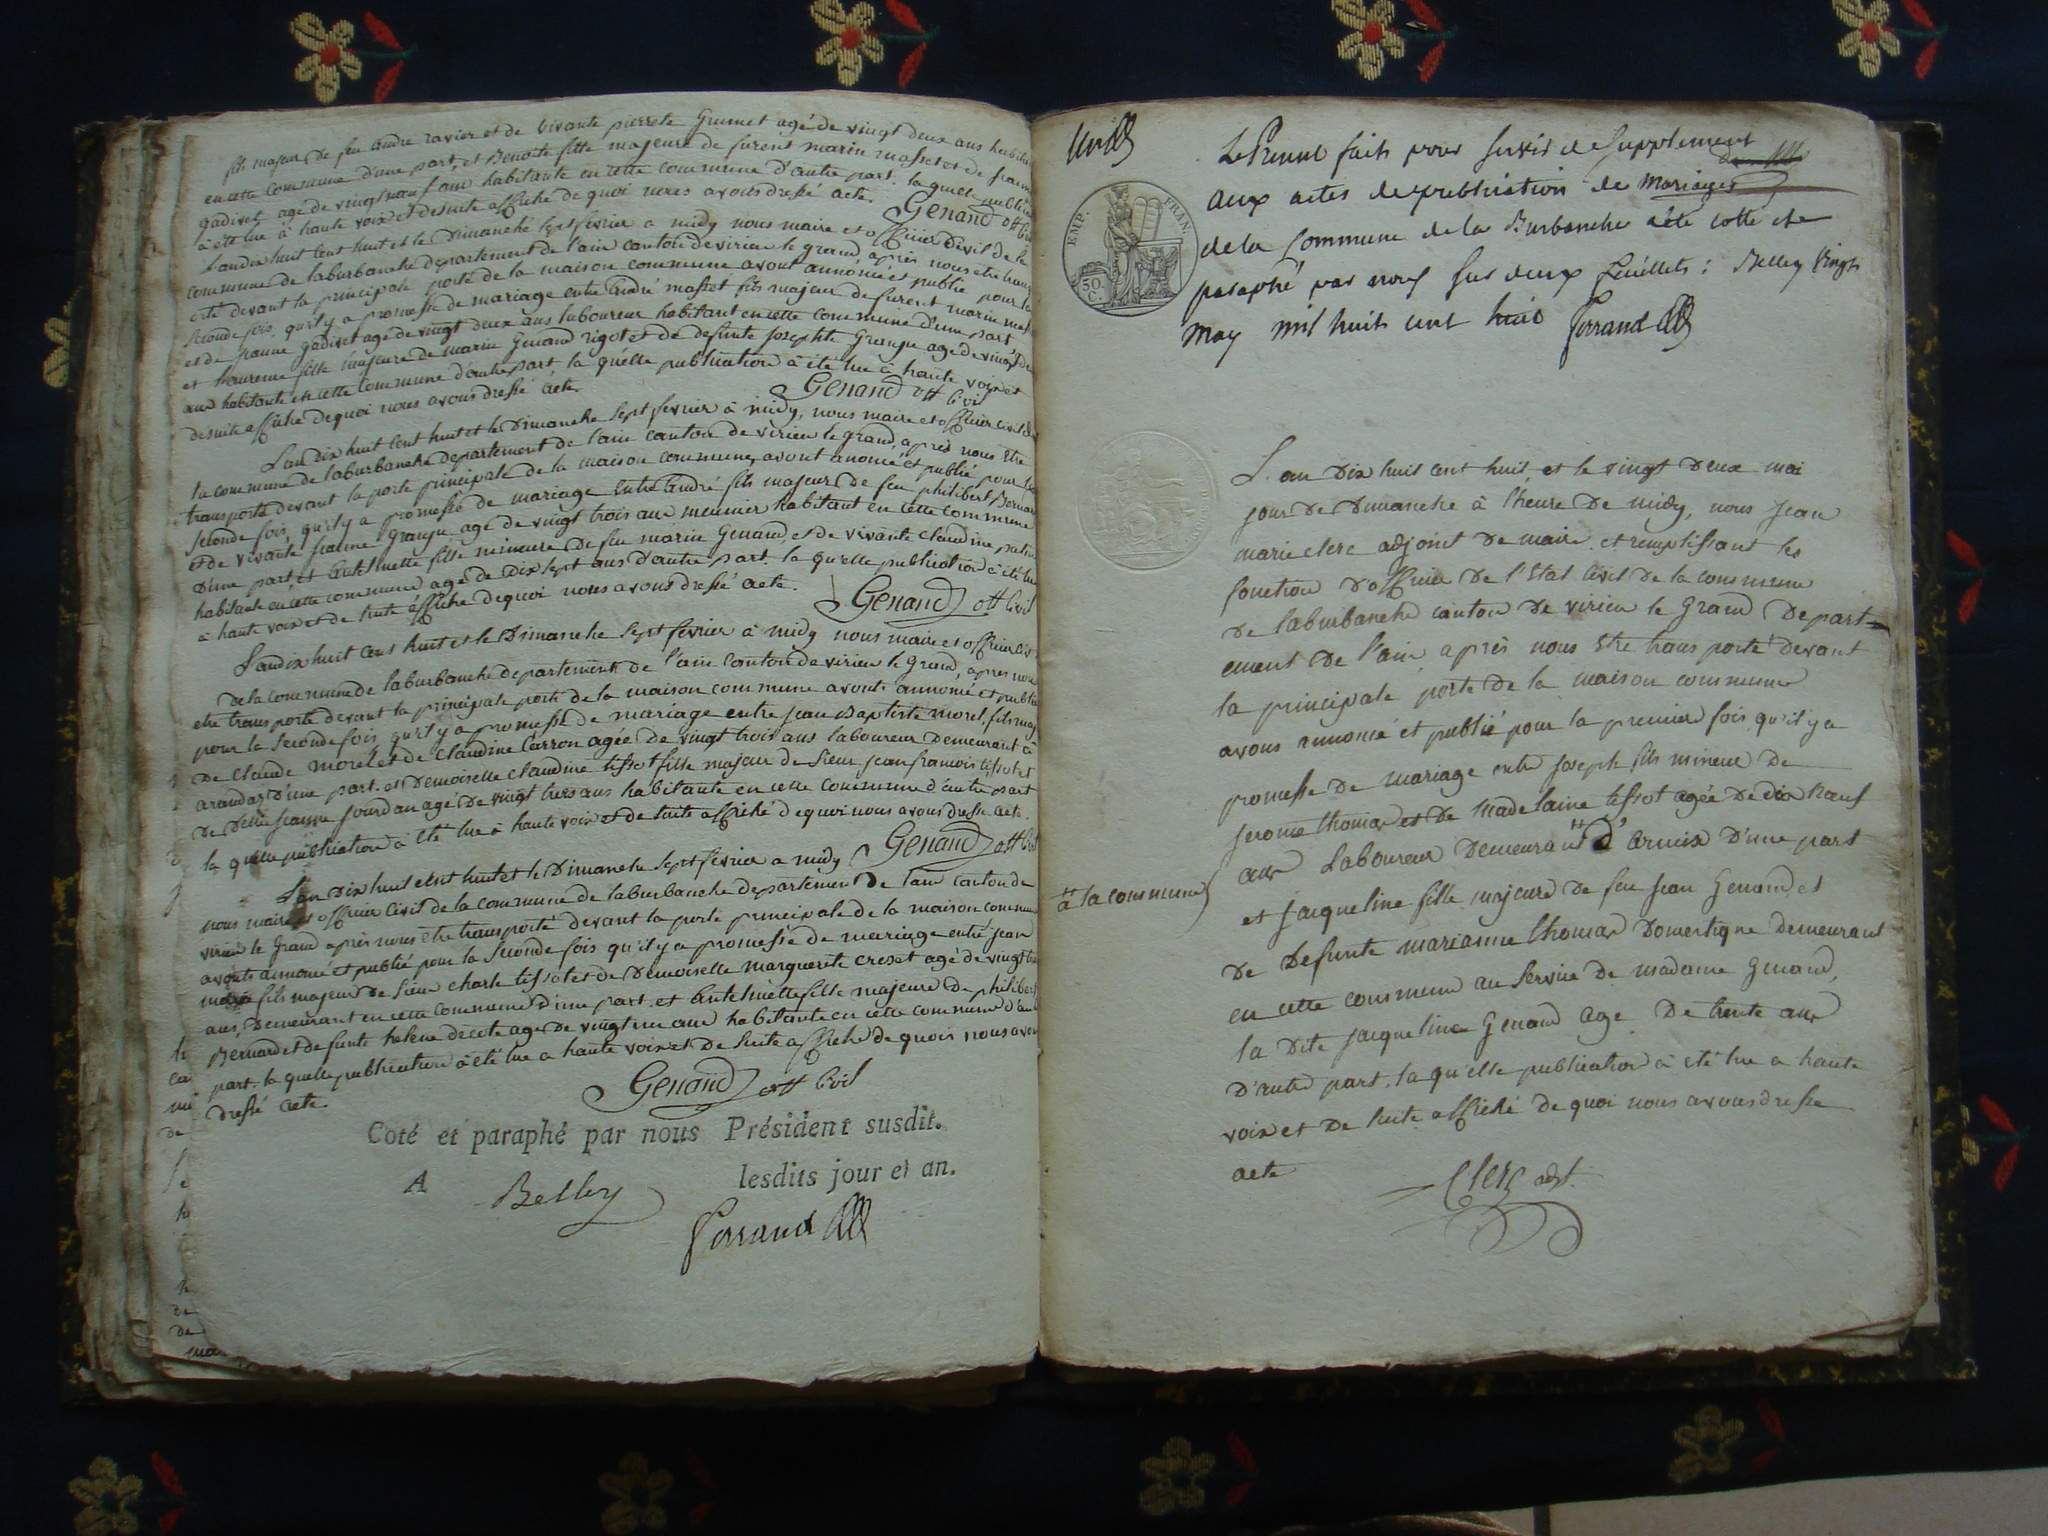 fils majeur de feu andre ravier et de vivante pierrete Grumet agé de vingt deux ans habitant
en cette commune d'une part, et Benoite fille majeure de furent marin masset et de jeanne
gadivet agé de vingt neuf ans habitante en cette commune d'autre part. la quelle publication
à été lue à haute voix et de suite affiché de quoi nous avons dressé acte. Genand off Civil
L'an dix huit cent huit et le dimanche sept fevrier a midy nous maire et officier civil de la
commune de laburbanche departement de l'ain canton de virieu le grand, après nous etre trans
orté devant la principale porte de la maison commune avont annoncé et publié pour la
seconde fois, qu'il y a promesse de mariage entre andré masset fils majeur de furent marin mas
et de jeanne gadivet agé de vingt deux ans laboureur habitant en cette commune d'une part
et Laurenne fille majeure de marin Genand rigot et de defunte josephte Granju age de vingt deux
ans habitante en cette commune d'autre part, la quelle publication à été lue à haute voix et
de suite affiché de quoi nous avons dressé acte. Genand off Civil
L'an dix huit cent huit et le Dimanche sept fevrier à midy, nous maire et officier civil de
la commune de laburbanche departement de l'ain canton de virieu le grand, après nous être
transporté devant la porte principale de la maison commune, avont anoncé et publié pour la
seconde fois, qu'il y a promesse de mariage entre andré fils majeur de feu philibert Bernard
et de vivante jeanne Granju age de vingt trois ans meunier habitant en cette commune
d'une part, et antelmette fille mineure de feu marin Genand, et de vivante claudine
habitante en cette commune agé de dix sept ans d'autre part. la quelle publication à été lue
à haute voix et de suite affiché de quoi nous avons dressé acte. Genand off Civil
L'an dix huit cent huit et le Dimanche sept fevrier à midy nous maire et officier civil
de la commune de laburbanche departement de l'ain canton de virieu le grand, apres nous
etre transporté devant la principale porte de la maison commune avonts annoncé et publié
pour la seconde fois qu'il y a promesse de mariage entre jean Baptiste morel, fils maj
de claude morel et de claudine Carron agée de vingt trois ans laboureur demeurant à
arandaz d'une part. et Demoiselle claudine tissot fille majeur de sieur jean francois tissot et
de Delle jeanne jourdan agé de vingt trois ans habitante en cette commune d'autre part
la quelle publication à été lue à haute voix et de suite affiché de quoi nous avons dressé acte.
Genand off Civil
L'an dix huit cent huit et le Dimanche sept fevrier a midy
nous maire et officier civil de la commune de laburbanche departement de l'ain canton de
virieu le Grand après nous etre transporté devant la porte principale de la maison commune
avonts annoncé et publié pour la seconde fois qu'il y a promesse de mariage entre jean
marie fils majeur de sieur charle tissot et de Demoiselle marguerite creset agé de vingt
ans, Demeurant en cette commune d'une part et antelmette fille majeure de philibert
Bernard et de funte helene décote age de vingt un ans habitante en cette commune d'autre
part. la quelle publication à été lue a haute voix et de suite affiché de quoi nous avons
dressé acte. Genand off Civil
Coté et paraphé par nous Président susdit.
A Belley lesdits jour et an.
Ferrand
Le Present faits pour servir de Supplement
aux actes de publication de Mariages
de la Commune de la Burbanche a été cotté et
paraphé par nous sur deux feuillets : Belley Vingt
May mil huit cent huit Ferrand
EMP. FRAN.
50 C.
L'an dix huit cent huit, et le vingt deux mai
jour de dimanche à l'heure de midy, nous jean
marie clerc adjoint de maire, et remplissant les
fonction d'officier de l'Etat civil de la commune
de laburbanche canton de virieu le Grand Depart=
ement de l'ain, après nous être transporté devant
la principale porte de la maison commune
avons annoncé et publié pour la premier fois qu'il y a
promesse de mariage entre joseph fils mineur de
jerome thomas et de madelaine tissot agée de dix neuf
ans Laboureur demeurant # d'armix d'une part
# à la commune
et jacqueline fille majeure de feu jean Genand et
de defunte marianne thomas Domestique demeurant
en cette commune au service de madame Genand,
la dite jacqueline Genand age De trente ans
d'autre part. la qu'elle publication à été lue a haute
voix et de suite affiché de quoi nous avons dresse
acte
Clerc adjt.